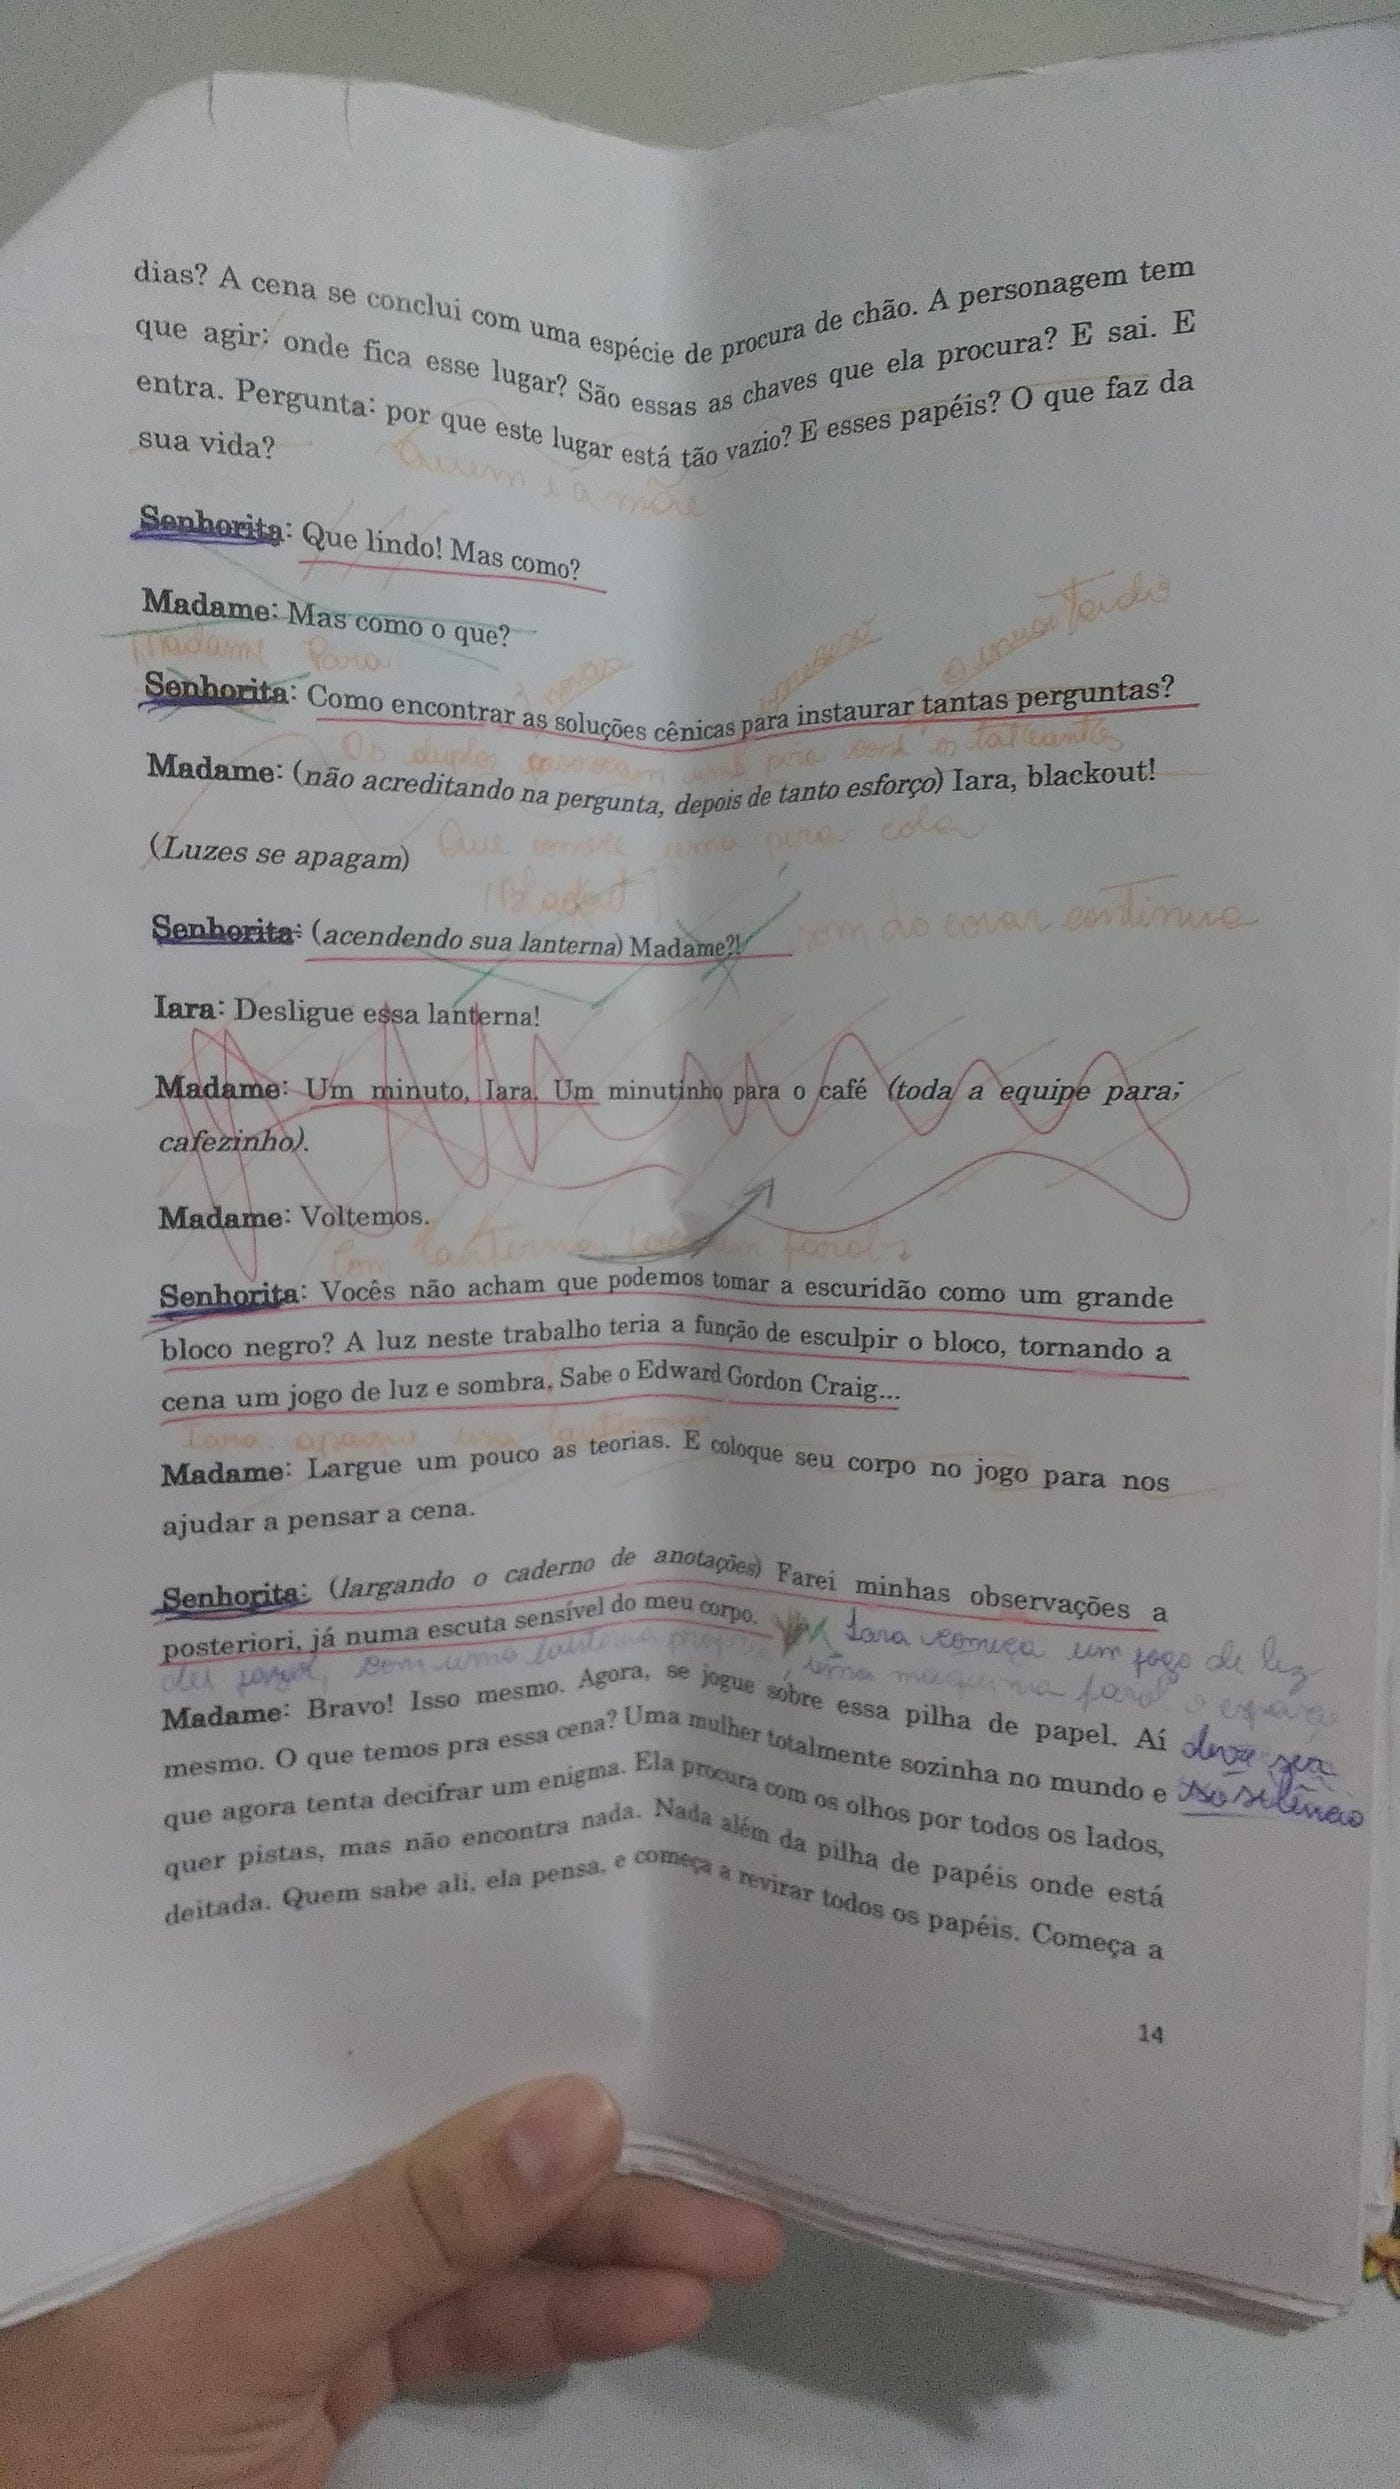 dias? A cena se conclui com uma espécie de procura de chão. A personagem tem
que agir: onde fica esse lugar? São essas as chaves que ela procura? E sai. E
entra. Pergunta: por que este lugar está tão vazio? E esses papéis? O que faz da
sua vida?
Quem é a mãe
Senhorita: Que lindo! Mas como?
Madame: Mas como o que?
Madame Para
Senhorita: Como encontrar as soluções cênicas para instaurar tantas perguntas?
Madame: (não acreditando na pergunta, depois de tanto esforço) Iara, blackout!
(Luzes se apagam)
(Blackout)
Senhorita: (acendendo sua lanterna) Madame?!
som do coxar continua
Iara: Desligue essa lanterna!
Madame: Um minuto, Iara. Um minutinho para o café (toda a equipe para;
cafezinho).
Madame: Voltemos.
Com lanterna
Senhorita: Vocês não acham que podemos tomar a escuridão como um grande
bloco negro? A luz neste trabalho teria a função de esculpir o bloco, tornando a
cena um jogo de luz e sombra. Sabe o Edward Gordon Craig...
Iara: apague essa lanterna
Madame: Largue um pouco as teorias. E coloque seu corpo no jogo para nos
ajudar a pensar a cena.
Senhorita: (largando o caderno de anotações) Farei minhas observações a
posteriori, já numa escuta sensível do meu corpo.
Iara começa um jogo de luz
com uma lanterna
Madame: Bravo! Isso mesmo. Agora, se jogue sobre essa pilha de papel. Aí
mesmo. O que temos pra essa cena? Uma mulher totalmente sozinha no mundo e
que agora tenta decifrar um enigma. Ela procura com os olhos por todos os lados,
quer pistas, mas não encontra nada. Nada além da pilha de papéis onde está
deitada. Quem sabe ali, ela pensa, e começa a revirar todos os papéis. Começa a
deve ser
no silêncio
14